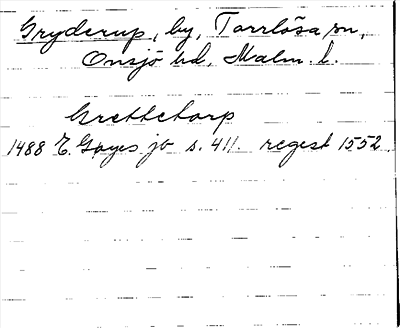 Gryderup, by, Torrlösa sn,
Onsjö hd, Malm. l.
Grettetorp
1488 E. Gøyes jb s. 411. regest 1552